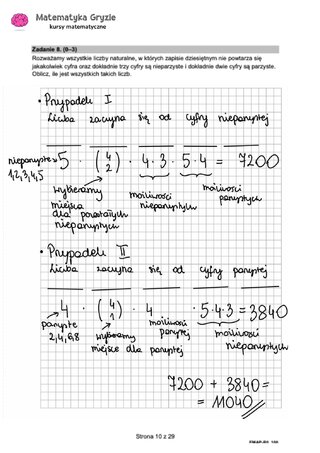 Matematyka Gryzie
kursy matematyczne
Zadanie 8. (0–3)
Rozważamy wszystkie liczby naturalne, w których zapisie dziesiętnym nie powtarza się
jakakolwiek cyfra oraz dokładnie trzy cyfry są nieparzyste i dokładnie dwie cyfry są parzyste.
Oblicz, ile jest wszystkich takich liczb.
• Przypadek I
Liczba zaczyna się od cyfry nieparzystej
nieparzyste 5 · (4 2) · 4·3 · 5·4 = 7200
1,2,3,4,5
wybieramy miejsca dla pozostałych nieparzystych
możliwości nieparzystych
możliwości parzystych
• Przypadek II
Liczba zaczyna się od cyfry parzystej
4 · (4 1) · 4 · 5·4·3 = 3840
parzyste 2,4,6,8
wybieramy miejsce dla parzystej
możliwości parzystej
możliwości nieparzystych
7200 + 3840 =
= 11040
Strona 10 z 29